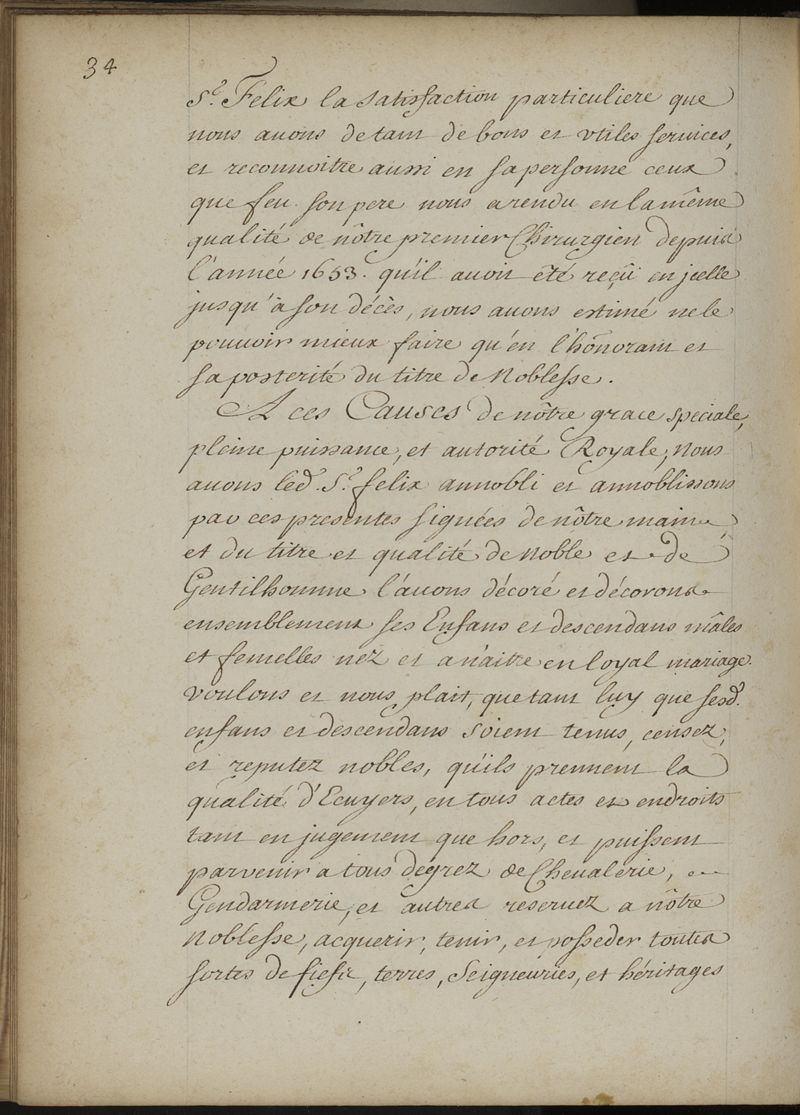 34
S.r Felix la satisfaction particuliere que
nous auons de tant de bons et vtiles seruices,
et reconnoitre aussi en sa personne ceux
que feu son pere nous a rendu en la même
qualité de nôtre premier Chirurgien depuis
l'année 1653. qu'il auoit été reçû en jcelle
jusqu'à son décès, nous auons estimé ne le
pouuoir mieux faire qu'en l'hônorant et
sa posterité du titre de Noblesse.
A ces Causes de nôtre grace speciale,
pleine puissance, et autorité Royale, Nous
auons led. S.r felix annobli et annoblissons
par ces presentes signées de nôtre main
et du titre et qualité de Noble et de
Gentilhomme l'auons décoré et décorons
ensemblement ses Enfans et descendans mâles
et femelles nez et a naitre en loyal mariage.
Voulons et nous plait, que tant luy que sesd.
enfans et descendans soient tenus, censez,
et reputez nobles, qu'ils prennent la
qualité d'Ecuyers, en tous actes et endroits
tant en jugement que hors, et puissent
parvenir a tous degrez de Cheualerie,
Gendarmerie, et autres reseruez a nôtre
Noblesse, acquerir, tenir, et posseder toutes
sortes de fiefs, terres, Seigneuries, et héritages